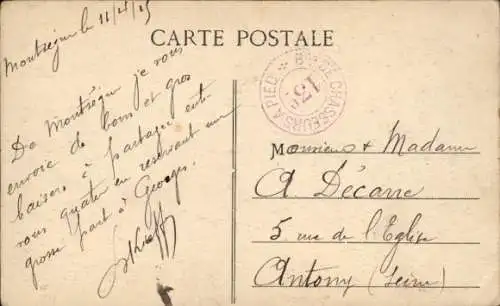 Montségur le 11/4/15
CARTE POSTALE
BON DE CHASSEURS A PIED
De Montségur je vous
envoie de bons et gros
baisers à partager entre
vous quatre en reservant une
grosse part à Georges.
Monsieur & Madame
A Décarre
5 rue de l'Eglise
Antony (Seine)